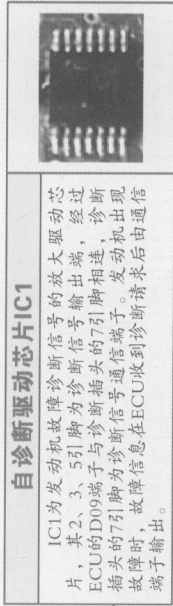 自诊断驱动芯片IC1
IC1为发动机故障诊断信号的放大驱动芯
片，其2、3、5引脚为诊断信号输出端，经过
ECU的D09端子与诊断插头的7引脚相连，诊断
插头的7引脚为诊断信号通信端子。发动机出现
故障时，故障信息在ECU收到诊断请求后由通信
端子输出。